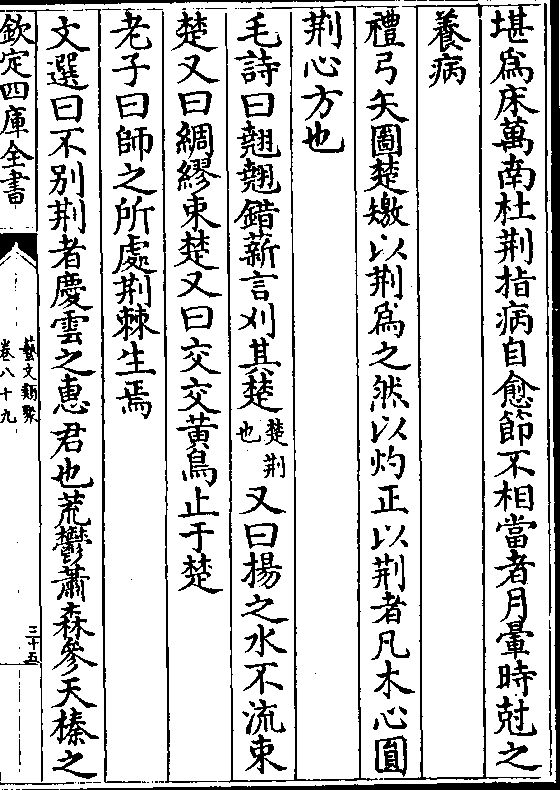 堪爲床萬南杜荆指病自愈節不相當者月暈時尅之
養病
禮弓矢圖楚㷍以荆爲之然以灼正以荆者凡木心圓
荆心方也
毛詩曰翹翹錯薪言刈其楚楚荆也又曰揚之水不流束
楚又曰綢繆束楚又曰交交黃鳥止于楚
老子曰師之所處荆棘生焉
文選曰不別荆者慶雲之惠君也荒鬱蕭森參天榛之
欽定四庫全書
藝文類聚
卷八十九
三十五